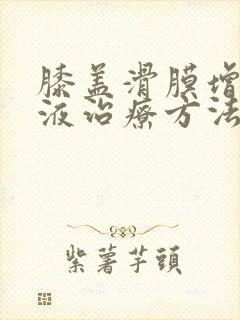 膝盖滑膜增
液治疗方法
紫薯芋頭